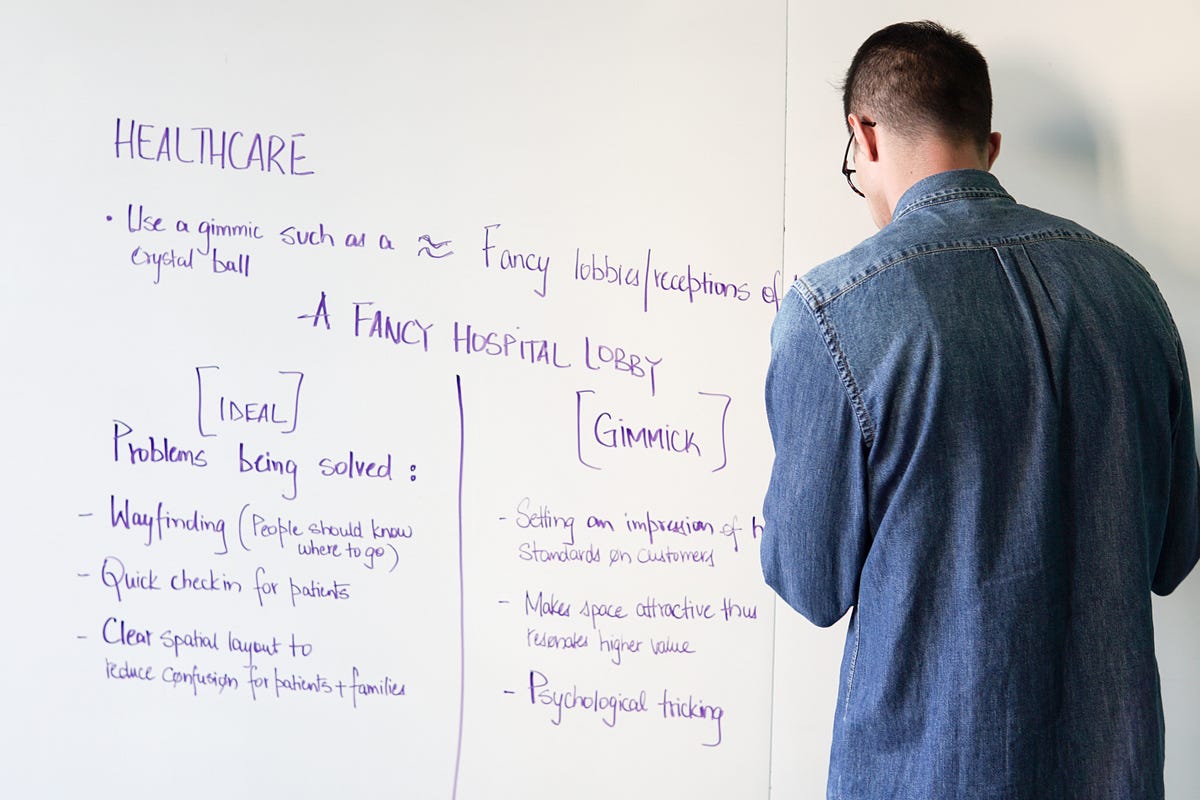 HEALTHCARE
• Use a gimmic such as a ≈ Fancy lobbies/receptions of
crystal ball
-A FANCY HOSPITAL LOBBY
[IDEAL]
Problems being solved :
- Wayfinding (People should know
where to go)
- Quick checkin for patients
- Clear spatial layout to
reduce confusion for patients + families
[GIMMICK]
- Setting an impression of
Standards on customers
- Makes space attractive thus
resonates higher value
- Psychological tricking